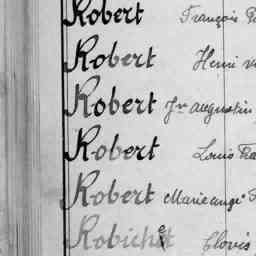 Robert François
Robert Henri
Robert Jn Augustin
Robert Louis
Robert Marie ange
Robichet Clovis